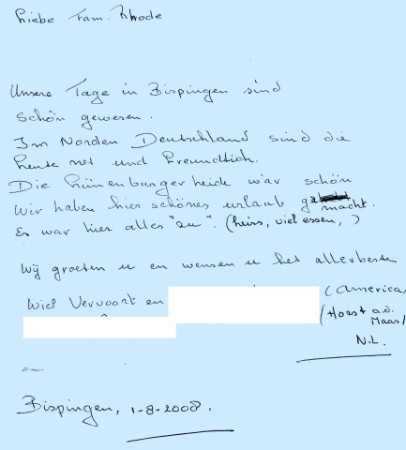 Liebe Fam. Rhode
Unsere Tage in Bispingen sind
schön gewesen.
Im Norden Deutschland sind die
Leute not und Freundlich.
Die Lünenburgerheide war schön
Wir haben hier schönes urlaub gemacht.
Es war hier alles "zu". (heiss, viel essen, )
Wij groeten u en wensen u het allerbeste
Wiel Vervoort en
(America
/Horst a.d.
Maas/
N.L.
Bispingen, 1-8-2008.